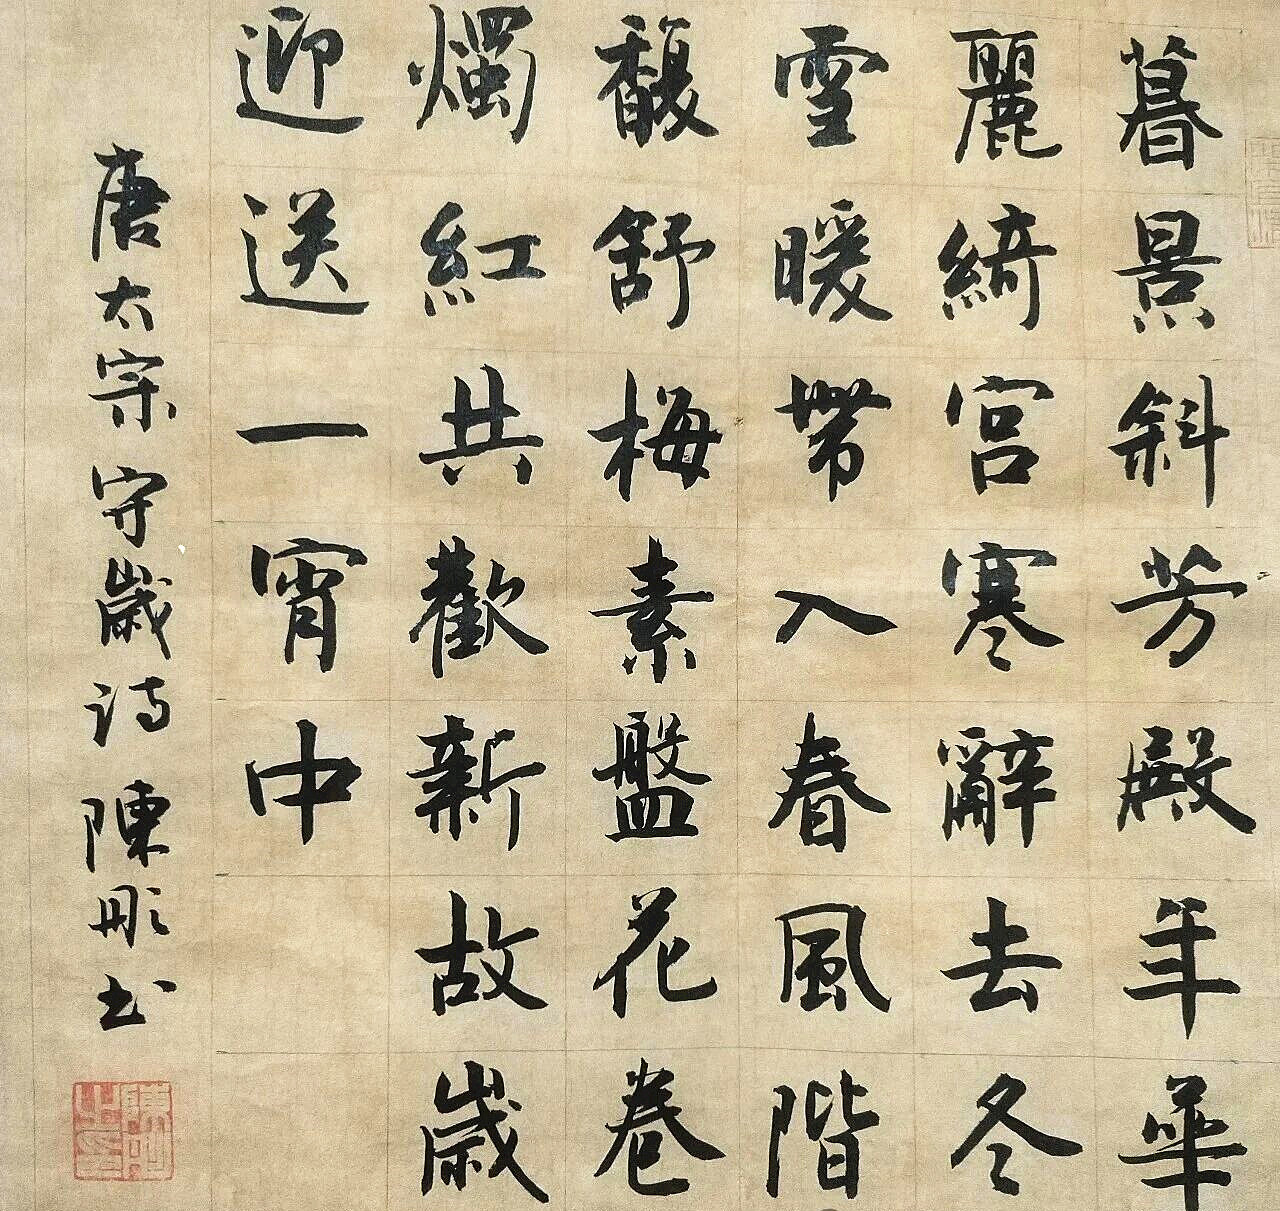 暮景斜芳殿年華
麗綺宮寒辭去冬
雪暖帶入春風階
馥舒梅素盤花卷
燭紅共歡新故歲
迎送一宵中
唐太宗守歲詩陳彤书